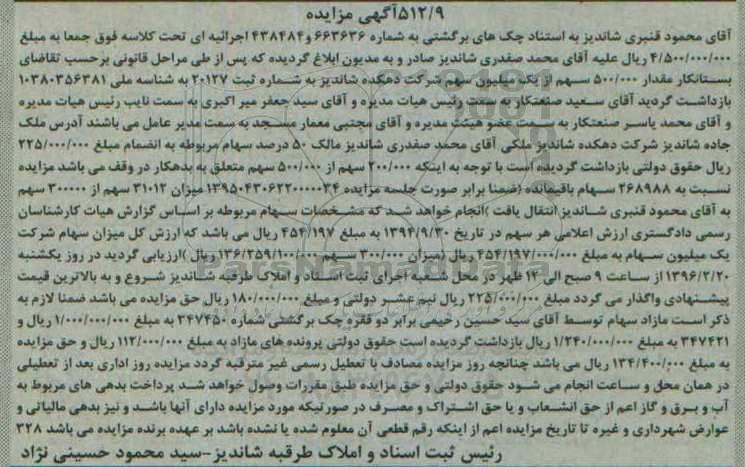 ۵۱۲/۹آگهی مزایده
آقای محمود قنبری شاندیز به استناد چک های برگشتی به شماره ۶۶۳۶۳۶ و۴۳۸۴۸۴ اجرائیه ای تحت کلاسه فوق جمعا به مبلغ
۴/۵۰۰/۰۰۰/۰۰۰ ریال علیه آقای محمد صفدری شاندیز صادر و به مدیون ابلاغ گردیده که پس از طی مراحل قانونی برحسب تقاضای
بستانکار مقدار ۵۰۰/۰۰۰ سهم از یک میلیون سهم شرکت دهکده شاندیز به شماره ثبت ۲۰۱۲۷ به شناسه ملی ۱۰۳۸۰۳۵۶۳۸۱
بازداشت گردید آقای سعید صنعتکار به سمت رئیس هیات مدیره و آقای سید جعفر میر اکبری به سمت نایب رئیس هیات مدیره
و آقای محمد یاسر صنعتکار به سمت عضو هیئت مدیره و آقای مجتبی معمار مسجد به سمت مدیر عامل می باشند آدرس ملک
جاده شاندیز شرکت دهکده شاندیز ملکی آقای محمد صفدری شاندیز مالک ۵۰ درصد سهام مربوطه به انضمام مبلغ ۲۲۵/۰۰۰/۰۰۰
ریال حقوق دولتی بازداشت گردیده است با توجه به اینکه ۲۰۰/۰۰۰ سهم از ۵۰۰/۰۰۰ سهم متعلق به بدهکار در وقف می باشد مزایده
نسبت به ۲۶۸۹۸۸ سهام باقیمانده (ضمنا برابر صورت جلسه مزایده ۱۳۹۵۰۴۳۰۶۲۲۰۰۰۰۰۳۴ میزان ۳۱۰۱۲ سهم از ۳۰۰۰۰۰ سهم
به آقای محمود قنبری شاندیز انتقال یافت )انجام خواهد شد که مشخصات سهام مربوطه بر اساس گزارش هیات کارشناسان
رسمی دادگستری ارزش اعلامی هر سهم در تاریخ ۱۳۹۴/۹/۳۰ به مبلغ ۴۵۴/۱۹۷ ریال می باشد که ارزش کل میزان سهام شرکت
یک میلیون سهام به مبلغ ۴۵۴/۱۹۷/۰۰۰/۰۰۰ ریال (میزان ۳۰۰/۰۰۰ سهم ۱۳۶/۲۵۹/۱۰۰/۰۰۰ ریال )ارزیابی گردید در روز یکشنبه
۱۳۹۶/۲/۲۰ از ساعت ۹ صبح الی ۱۲ ظهر در محل شعبه اجرای ثبت اسناد و املاک طرقبه شاندیز شروع و به بالاترین قیمت
پیشنهادی واگذار می گردد مبلغ ۲۲۵/۰۰۰/۰۰۰ ریال نیم عشر دولتی و مبلغ ۱۸۰/۰۰۰/۰۰۰ ریال حق مزایده می باشد ضمنا لازم به
ذکر است مازاد سهام توسط آقای سید حسین رحیمی برابر دو فقره چک برگشتی شماره ۳۴۷۴۵۰ به مبلغ ۱/۰۰۰/۰۰۰/۰۰۰ ریال و
۳۴۷۴۲۱ به مبلغ ۱/۲۴۰/۰۰۰/۰۰۰ ریال بازداشت گردیده است حقوق دولتی پرونده های مازاد به مبلغ ۱۱۲/۰۰۰/۰۰۰ ریال و حق مزایده
به مبلغ ۱۳۴/۴۰۰/۰۰۰ ریال می باشد چنانچه روز مزایده مصادف با تعطیل رسمی غیر مترقبه گردد مزایده روز اداری بعد از تعطیلی
در همان محل و ساعت انجام می شود حقوق دولتی و حق مزایده طبق مقررات وصول خواهد شد پرداخت بدهی های مربوط به
آب و برق و گاز اعم از حق انشعاب و یا حق اشتراک و مصرف در صورتیکه مورد مزایده دارای آنها باشد و نیز بدهی مالیاتی و
عوارض شهرداری و غیره تا تاریخ مزایده اعم از اینکه رقم قطعی آن معلوم شده یا نشده باشد بر عهده برنده مزایده می باشد ۳۲۸
رئیس ثبت اسناد و املاک طرقبه شاندیز-سید محمود حسینی نژاد